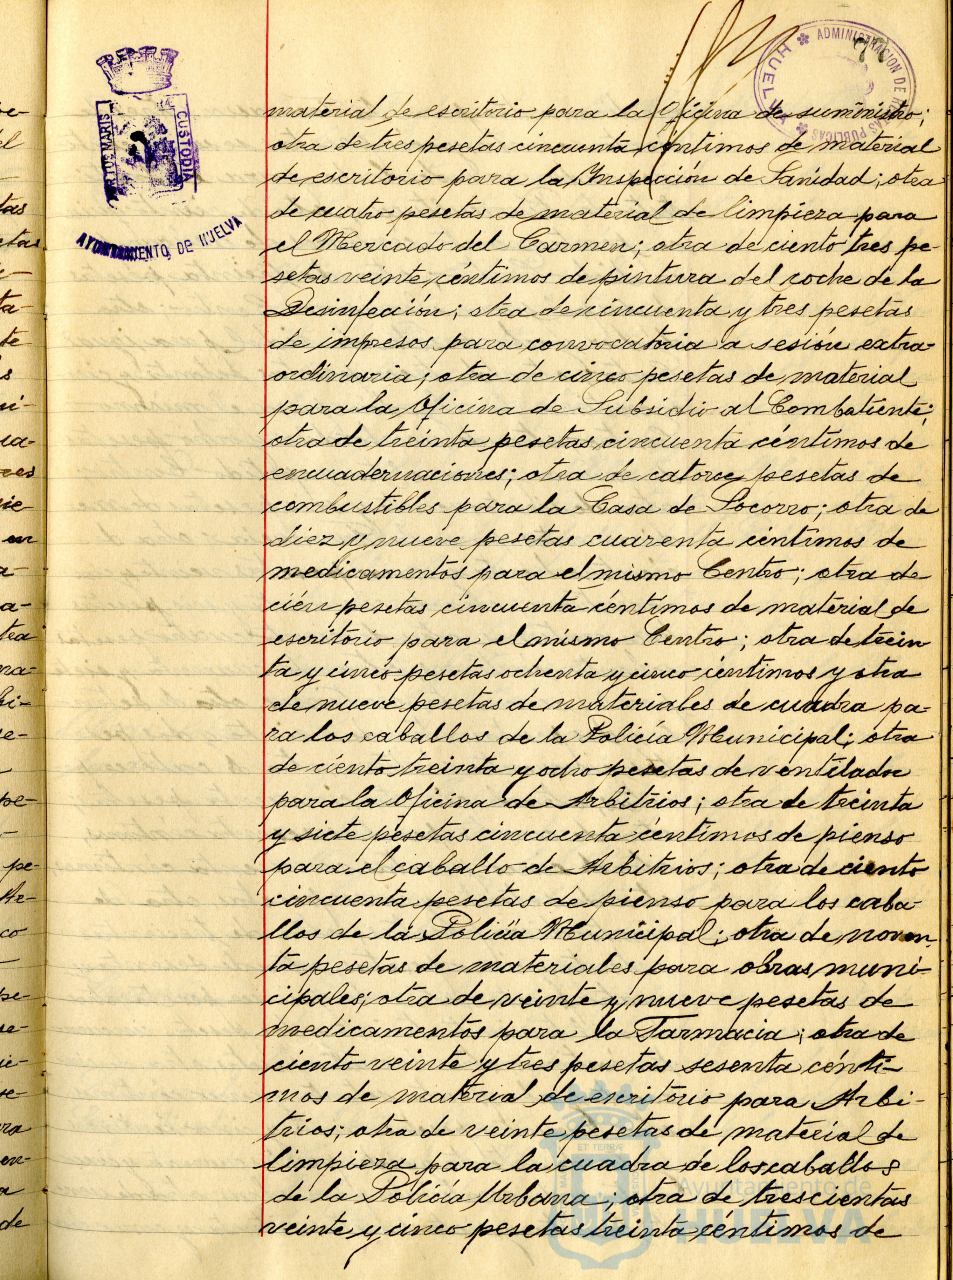 ADMINISTRACION DE
PUBLICAS
HUELVA
PORTUS MARIS
CUSTODIA
AYUNTAMIENTO DE HUELVA
material de escritorio para la Oficina de suministro;
otra de tres pesetas cincuenta céntimos de material
de escritorio para la Inspección de Sanidad; otra
de cuatro pesetas de material de limpieza para
el Mercado del Carmen; otra de ciento tres pe-
setas veinte céntimos de pintura del coche de la
Desinfección; otra de cincuenta y tres pesetas
de impresos para convocatoria a sesión extra-
ordinaria; otra de cinco pesetas de material
para la Oficina de Subsidio al Combatiente;
otra de treinta pesetas cincuenta céntimos de
encuadernaciones; otra de catorce pesetas de
combustibles para la Casa de Socorro; otra de
diez y nueve pesetas cuarenta céntimos de
medicamentos para el mismo Centro; otra de
cién pesetas cincuenta céntimos de material de
escritorio para el mismo Centro; otra de trein
ta y cinco pesetas ochenta y cinco céntimos y otra
de nueve pesetas de materiales de cuadra pa-
ra los caballos de la Policía Municipal; otra
de ciento treinta y ocho pesetas de ventilador
para la Oficina de Arbitrios; otra de treinta
y siete pesetas cincuenta céntimos de pienso
para el caballo de Arbitrios; otra de ciento
cincuenta pesetas de pienso para los caba-
llos de la Policía Municipal; otra de noven-
ta pesetas de materiales para obras muni-
cipales; otra de veinte y nueve pesetas de
medicamentos para la Farmacia; otra de
ciento veinte y tres pesetas sesenta cénti-
mos de material de escritorio para Arbi-
trios; otra de veinte pesetas de material de
limpieza para la cuadra de los caballos
de la Policía Urbana; otra de trescientas
veinte y cinco pesetas treinta céntimos de
Ayuntamiento de
HUELVA